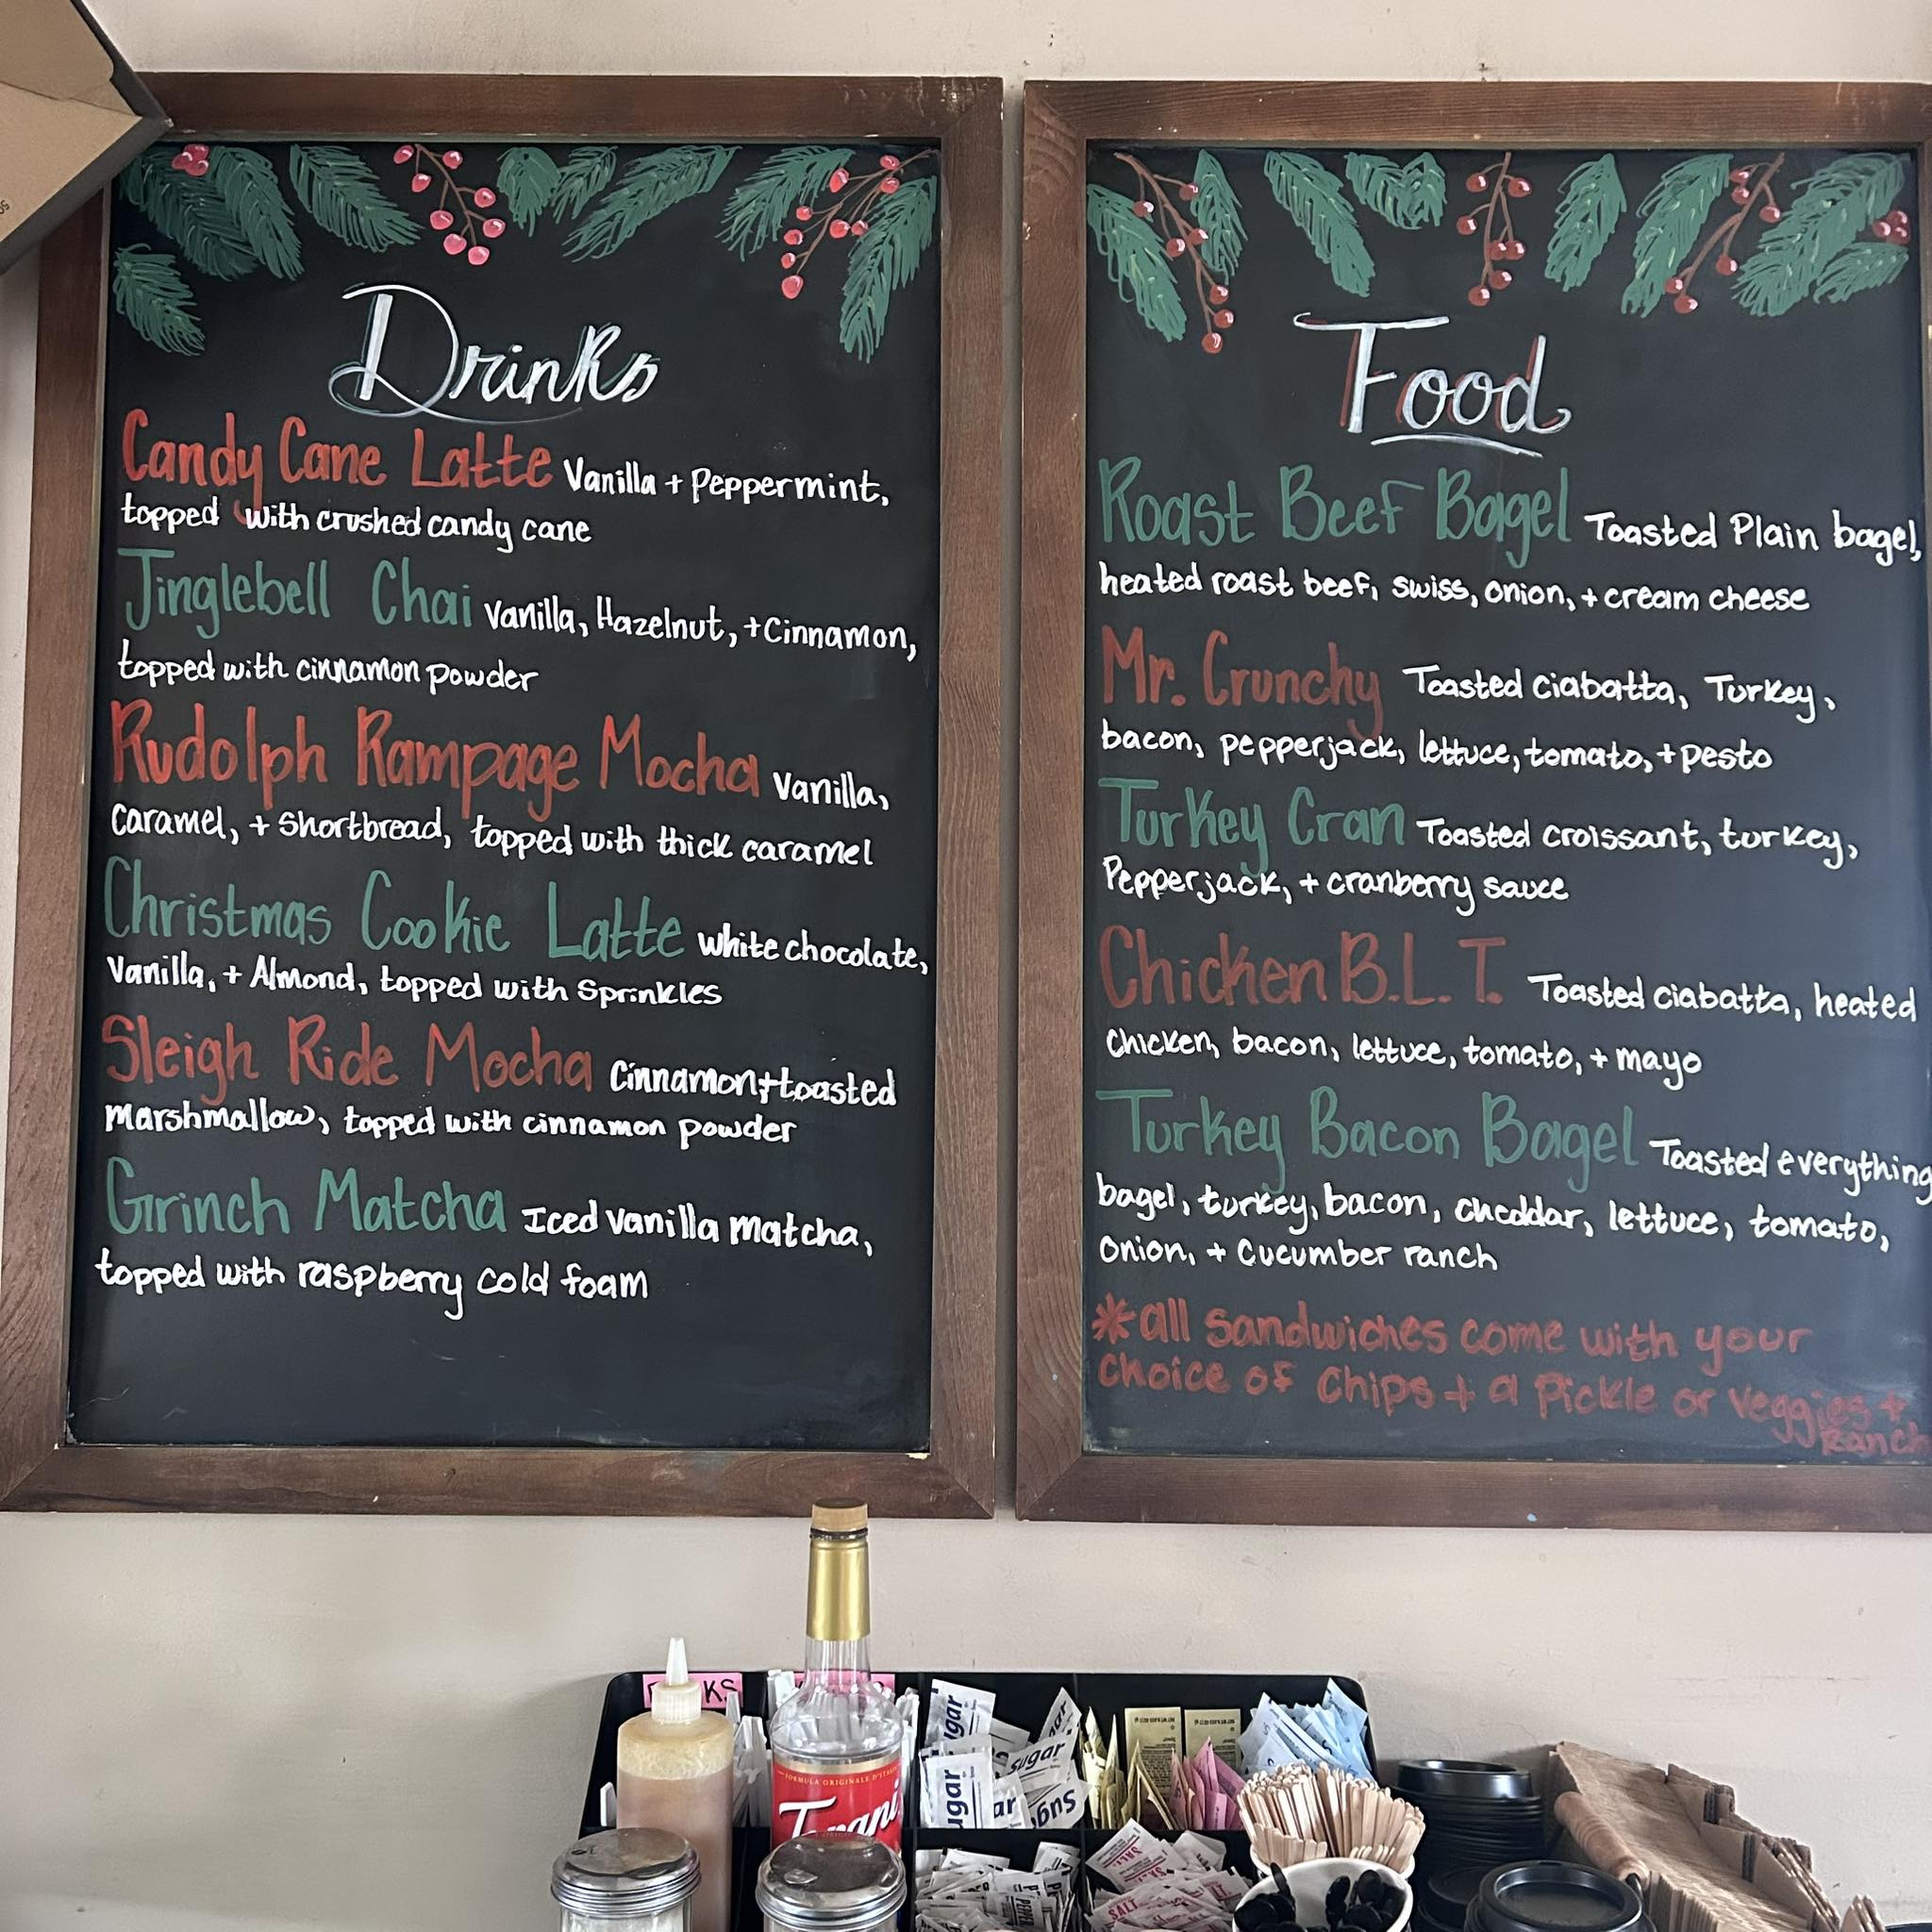 Drinks
Candy Cane Latte Vanilla + Peppermint,
topped with crushed candy cane
Jinglebell Chai Vanilla, Hazelnut, + Cinnamon,
topped with cinnamon powder
Rudolph Rampage Mocha Vanilla,
Caramel, + Shortbread, topped with thick caramel
Christmas Cookie Latte White chocolate,
Vanilla, + Almond, topped with Sprinkles
Sleigh Ride Mocha Cinnamon + toasted
marshmallow, topped with cinnamon powder
Grinch Matcha Iced vanilla matcha,
topped with raspberry cold foam
Food
Roast Beef Bagel Toasted Plain bagel,
heated roast beef, swiss, onion, + cream cheese
Mr. Crunchy Toasted ciabatta, Turkey,
bacon, pepperjack, lettuce, tomato, + pesto
Turkey Cran Toasted croissant, turkey,
Pepperjack, + cranberry sauce
Chicken B.L.T. Toasted ciabatta, heated
Chicken, bacon, lettuce, tomato, + mayo
Turkey Bacon Bagel Toasted everything
bagel, turkey, bacon, cheddar, lettuce, tomato,
Onion, + Cucumber ranch
*all sandwiches come with your
choice of chips + a pickle or veggies +
Ranch
FORMULA ORIGINALE D'ITALIA
Torani
Sugar
Sugar
Sugar
Sugar
SALT
SALT